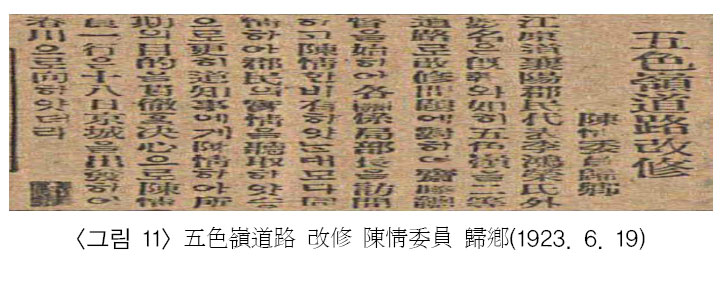 五色嶺道路改修
陳情委員歸鄕
江原道襄陽郡民代表李鴻榮氏外
數名은旣報와如히五色嶺을二等
道路로改修問題에對하야齋藤總
督을始하야各關係局部長을訪問
하고陳情한바有하얏는대모다同
情하야郡民의實情을聽取하얏슴
으로更히道知事에게陳情하야所
期의目的을貫徹決心으로陳情
員一行은十八日京城을出發하야
春川으로向하얏더라
〈그림 11〉 五色嶺道路 改修 陳情委員 歸鄕(1923. 6. 19)